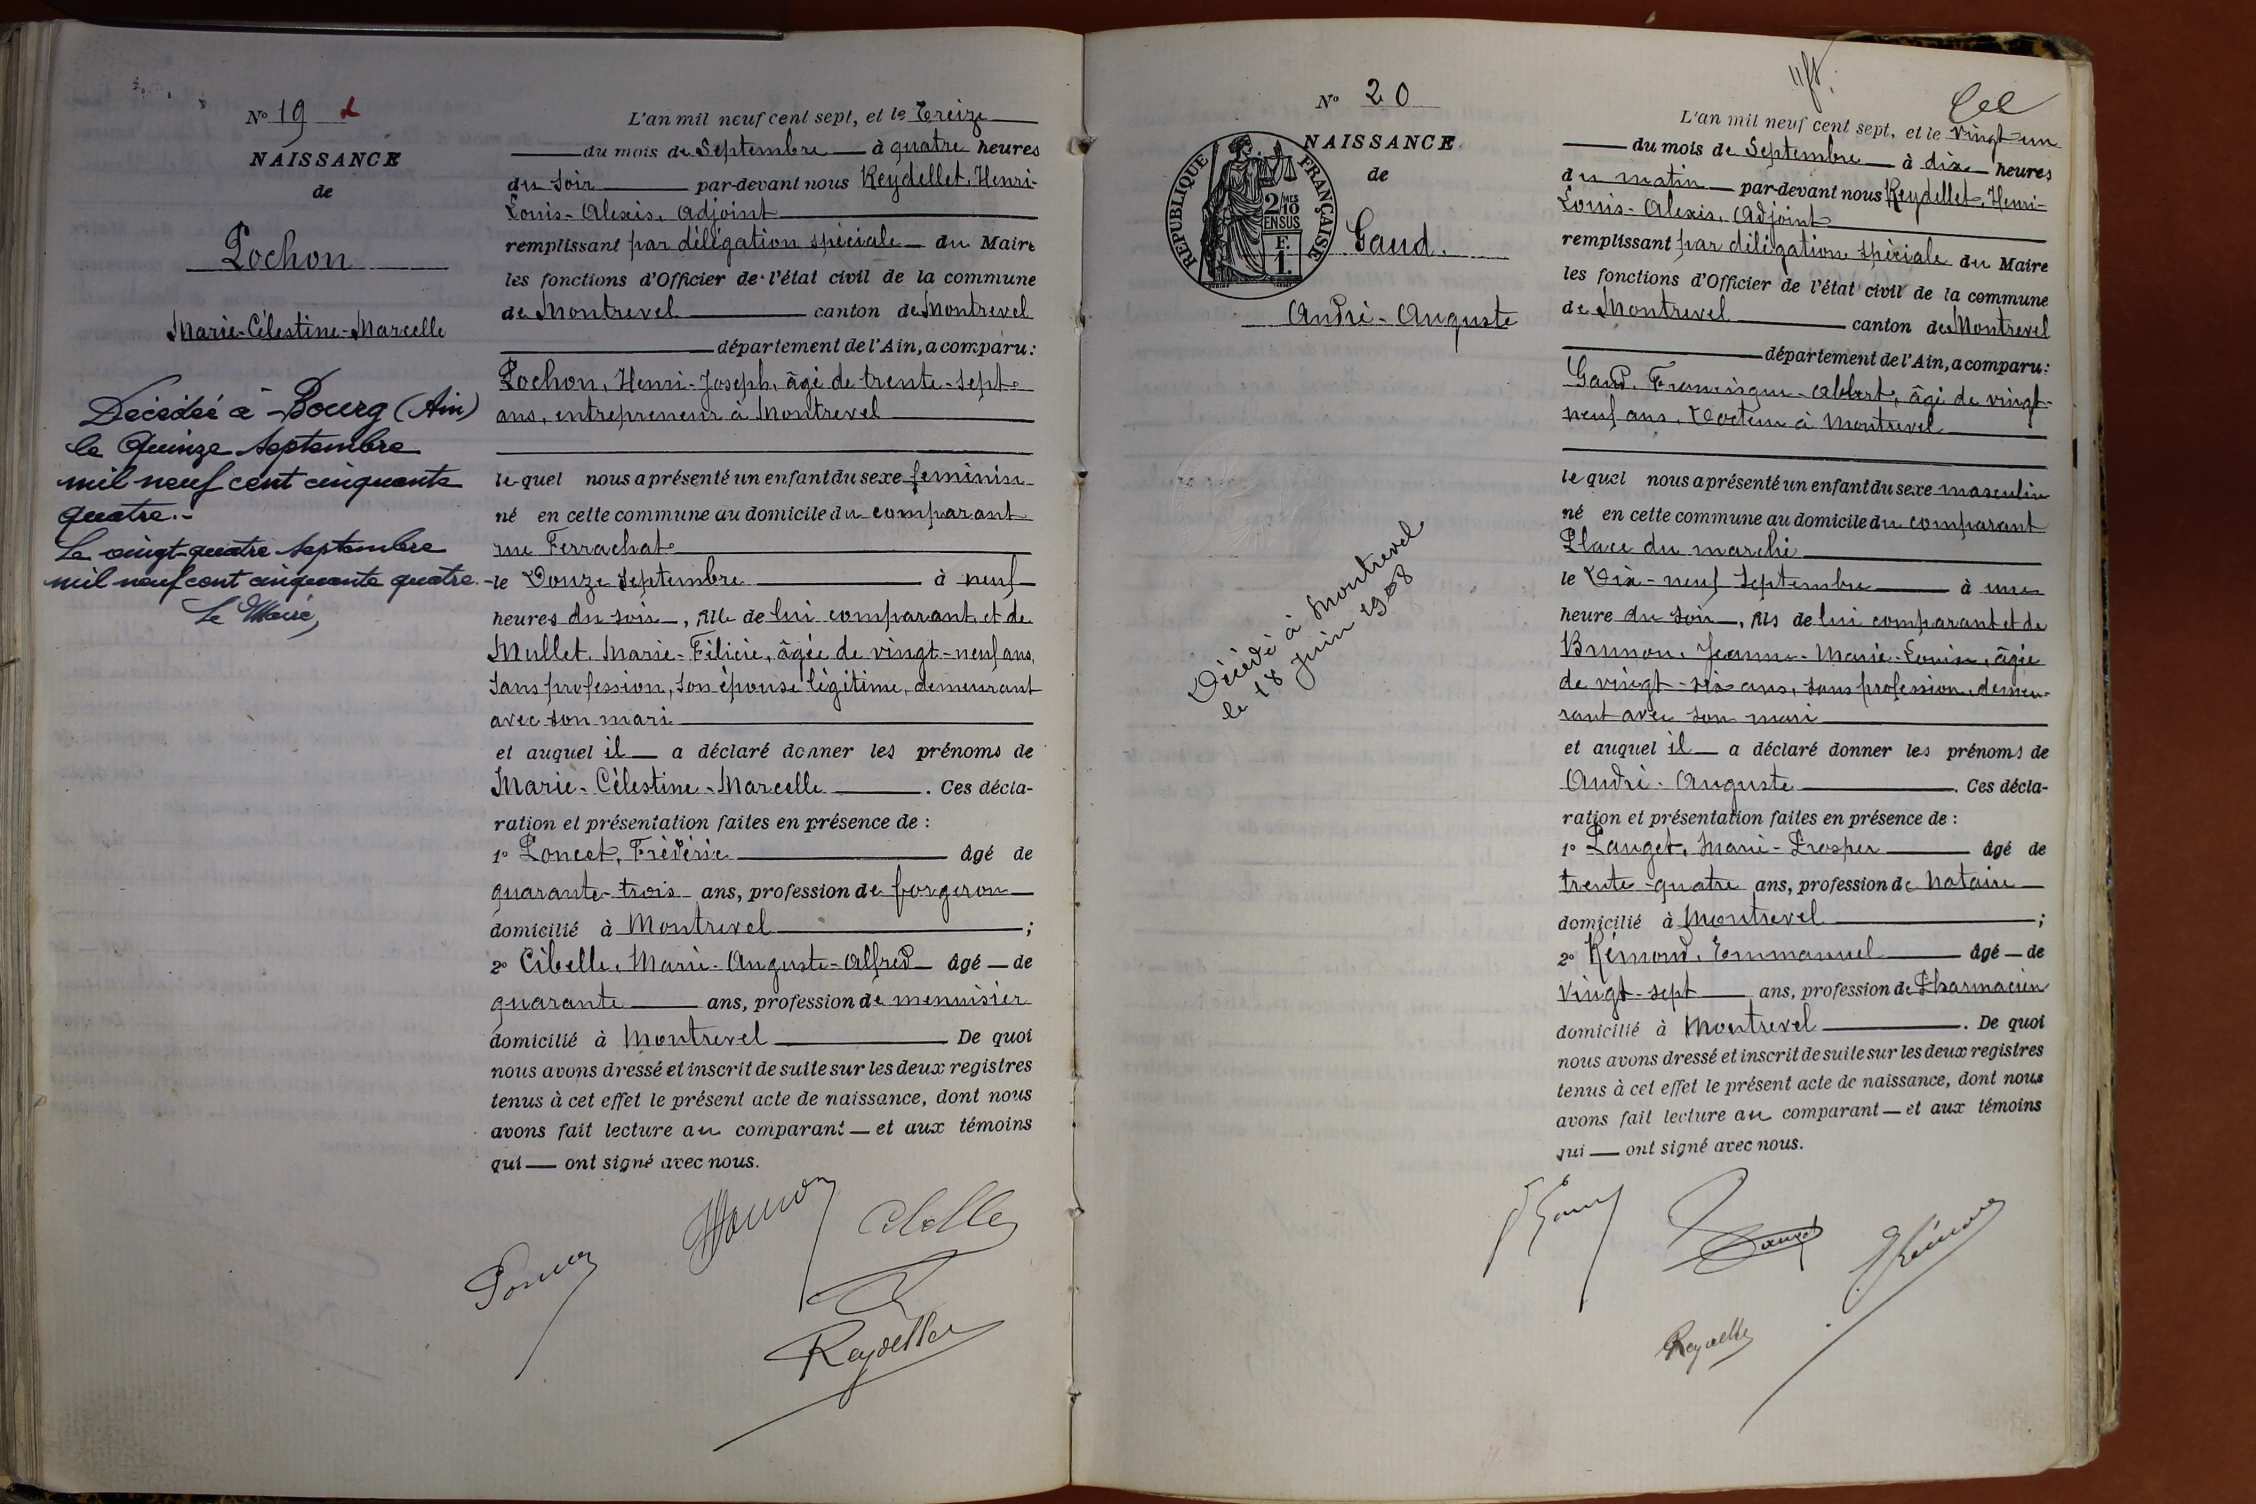 N° 19
NAISSANCE
de
Pochon
Marie-Célestine-Marcelle
Décédée à Bourg (Ain)
le Quinze Septembre
mil neuf cent cinquante
quatre.-
Le vingt-quatre septembre
mil neuf cent cinquante quatre.-
Le Maire,
L'an mil neuf cent sept, et le Treize
du mois de Septembre à quatre heures
du soir par-devant nous Reydellet, Henri-
Louis-Alexis, Adjoint
remplissant par délégation spéciale du Maire
les fonctions d'Officier de l'état civil de la commune
de Montrevel canton de Montrevel
département de l'Ain, a comparu:
Pochon, Henri-Joseph, âgé de trente-sept
ans, entrepreneur à Montrevel
lequel nous a présenté un enfant du sexe féminin
né en cette commune au domicile du comparant
rue Ferrachat
le Douze Septembre à neuf
heures du soir, fille de lui comparant et de
Mullet, Marie-Félicie, âgée de vingt-neuf ans,
sans profession, son épouse légitime, demeurant
avec son mari
et auquel il a déclaré donner les prénoms de
Marie-Célestine-Marcelle. Ces décla-
ration et présentation faites en présence de :
1° Poncet, Frédéric âgé de
quarante-trois ans, profession de forgeron
domicilié à Montrevel ;
2° Cibelle, Marie-Auguste-Alfred âgé de
quarante ans, profession de menuisier
domicilié à Montrevel De quoi
nous avons dressé et inscrit de suite sur les deux registres
tenus à cet effet le présent acte de naissance, dont nous
avons fait lecture au comparant et aux témoins
qui ont signé avec nous.
Cibelle
Poncet
Reydellet
N° 20
NAISSANCE
de
RÉPUBLIQUE FRANÇAISE
2/10 MES
EN SUS
F.
1.
Gaud.
André-Auguste
Décédé à Montrevel
le 18 Juin 1908
L'an mil neuf cent sept, et le vingt-un
du mois de Septembre à dix heures
du matin par-devant nous Reydellet, Henri-
Louis-Alexis, Adjoint
remplissant par délégation spéciale du Maire
les fonctions d'Officier de l'état civil de la commune
de Montrevel canton de Montrevel
département de l'Ain, a comparu:
Gaud, Francisque-Albert, âgé de vingt-
neuf ans, Docteur à Montrevel
lequel nous a présenté un enfant du sexe masculin
né en cette commune au domicile du comparant
Place du marché
le Dix-neuf Septembre à une
heure du soir, fils de lui comparant et de
Brunon, Jeanne-Marie-Louise, âgée
de vingt-six ans, sans profession, demeu-
rant avec son mari
et auquel il a déclaré donner les prénoms de
André-Auguste. Ces décla-
ration et présentation faites en présence de :
1° Pauget, Marie-Prosper âgé de
trente-quatre ans, profession de Notaire
domicilié à Montrevel ;
2° Rémond, Emmanuel âgé de
vingt-sept ans, profession de Pharmacien
domicilié à Montrevel. De quoi
nous avons dressé et inscrit de suite sur les deux registres
tenus à cet effet le présent acte de naissance, dont nous
avons fait lecture au comparant et aux témoins
qui ont signé avec nous.
Reydellet